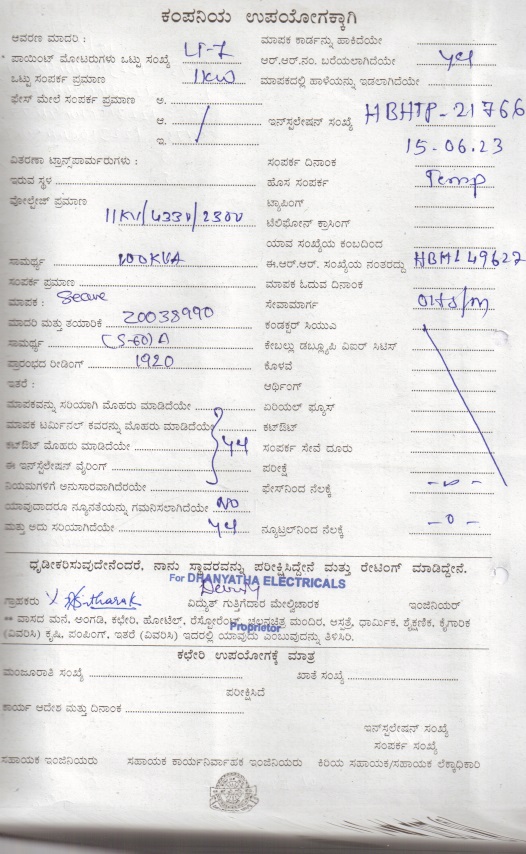 ಕಂಪನಿಯ ಉಪಯೋಗಕ್ಕಾಗಿ
ಆವರಣ ಮಾದರಿ :
ಮಾಪಕ ಕಾರ್ಡನ್ನು ಹಾಕಿದೆಯೇ
ಪಾಯಿಂಟ್ ಮೋಟರುಗಳು ಒಟ್ಟು ಸಂಖ್ಯೆ LT-7
ಆರ್.ಆರ್.ನಂ. ಬರೆಯಲಾಗಿದೆಯೇ
ಒಟ್ಟು ಸಂಪರ್ಕ ಪ್ರಮಾಣ 1KW
ಮಾಪಕದಲ್ಲಿ ಹಾಳೆಯನ್ನು ಇಡಲಾಗಿದೆಯೇ
ಫೇಸ್ ಮೇಲೆ ಸಂಪರ್ಕ ಪ್ರಮಾಣ ಅ.
ಆ.
ಇನ್‌ಸ್ಟಲೇಷನ್ ಸಂಖ್ಯೆ HBHTP-21766
ಇ.
15.06.23
ವಿತರಣಾ ಟ್ರಾನ್ಸ್‌ಪಾರ್ಮರುಗಳು :
ಸಂಪರ್ಕ ದಿನಾಂಕ
ಇರುವ ಸ್ಥಳ
ಹೊಸ ಸಂಪರ್ಕ Temp
ವೋಲ್ಟೇಜ್ ಪ್ರಮಾಣ
ಟ್ಯಾಪಿಂಗ್
11KV/433V/230V
ಟೆಲಿಫೋನ್ ಕ್ರಾಸಿಂಗ್
ಯಾವ ಸಂಖ್ಯೆಯ ಕಂಬದಿಂದ
ಸಾಮರ್ಥ್ಯ 100KVA
ಈ.ಆರ್.ಆರ್. ಸಂಖ್ಯೆಯ ನಂತರದ್ದು HBML49627
ಸಂಪರ್ಕ ಪ್ರಮಾಣ
ಮಾಪಕ ಓದುವ ದಿನಾಂಕ
ಮಾಪಕ : Secure
ಸೇವಾಮಾರ್ಗ OH
ಮಾದರಿ ಮತ್ತು ತಯಾರಿಕೆ 20038990
ಕಂಡಕ್ಟರ್ ಸಿಯುಎ
ಸಾಮರ್ಥ್ಯ (5-60)A
ಕೇಬಲ್ಲು ಡಬ್ಲ್ಯೂಪಿ ವಿಐರ್ ಸಿಟಿಸ್
ಪ್ರಾರಂಭದ ರೀಡಿಂಗ್ 1920
ಕೊಳವೆ
ಇತರೆ :
ಆರ್ಥಿಂಗ್
ಮಾಪಕವನ್ನು ಸರಿಯಾಗಿ ಮೊಹರು ಮಾಡಿದೆಯೇ
ಏರಿಯಲ್ ಫ್ಯೂಸ್
ಮಾಪಕ ಟರ್ಮಿನಲ್ ಕವರನ್ನು ಮೊಹರು ಮಾಡಿದೆಯೇ
ಕಟ್‌ಔಟ್
ಕಟ್‌ಔಟ್ ಮೊಹರು ಮಾಡಿದೆಯೇ
ಸಂಪರ್ಕ ಸೇವೆ ದೂರು
ಈ ಇನ್‌ಸ್ಟೆಲೇಷನ್ ವೈರಿಂಗ್
ಪರೀಕ್ಷೆ
ನಿಯಮಗಳಿಗೆ ಅನುಸಾರವಾಗಿದೆಯೇ
ಫೇಸ್‌ನಿಂದ ನೆಲಕ್ಕೆ
ಯಾವುದಾದರೂ ನ್ಯೂನತೆಯನ್ನು ಗಮನಿಸಲಾಗಿದೆಯೇ NO
ಮತ್ತು ಅದು ಸರಿಯಾಗಿದೆಯೇ
ನ್ಯೂಟ್ರಲ್‌ನಿಂದ ನೆಲಕ್ಕೆ -0-
ಧೃಡೀಕರಿಸುವುದೇನೆಂದರೆ, ನಾನು ಸ್ಥಾವರವನ್ನು ಪರೀಕ್ಷಿಸಿದ್ದೇನೆ ಮತ್ತು ರೇಟಿಂಗ್ ಮಾಡಿದ್ದೇನೆ.
For DHANYATHA ELECTRICALS
ಗ್ರಾಹಕರು
ವಿದ್ಯುತ್ ಗುತ್ತಿಗೆದಾರ ಮೇಲ್ವಿಚಾರಕ
ಇಂಜಿನಿಯರ್
** ವಾಸದ ಮನೆ, ಅಂಗಡಿ, ಕಛೇರಿ, ಹೋಟೆಲ್, ರೆಸ್ಟೋರೆಂಟ್, ಚಲನಚಿತ್ರ ಮಂದಿರ, ಆಸ್ಪತ್ರೆ, ಧಾರ್ಮಿಕ, ಶೈಕ್ಷಣಿಕ, ಕೈಗಾರಿಕೆ
Proprietor
(ವಿವರಿಸಿ) ಕೃಷಿ, ಪಂಪಿಂಗ್, ಇತರೆ (ವಿವರಿಸಿ) ಇದರಲ್ಲಿ ಯಾವುದು ಎಂಬುವುದನ್ನು ತಿಳಿಸಿರಿ.
ಕಛೇರಿ ಉಪಯೋಗಕ್ಕೆ ಮಾತ್ರ
ಮಂಜೂರಾತಿ ಸಂಖ್ಯೆ
ಖಾತೆ ಸಂಖ್ಯೆ
ಪರೀಕ್ಷಿಸಿದೆ
ಕಾರ್ಯ ಆದೇಶ ಮತ್ತು ದಿನಾಂಕ
ಇನ್‌ಸ್ಟಲೇಷನ್ ಸಂಖ್ಯೆ
ಸಂಪರ್ಕ ಸಂಖ್ಯೆ
ಸಹಾಯಕ ಇಂಜಿನಿಯರು
ಸಹಾಯಕ ಕಾರ್ಯನಿರ್ವಾಹಕ ಇಂಜಿನಿಯರು
ಕಿರಿಯ ಸಹಾಯಕ/ಸಹಾಯಕ ಲೆಕ್ಕಾಧಿಕಾರಿ